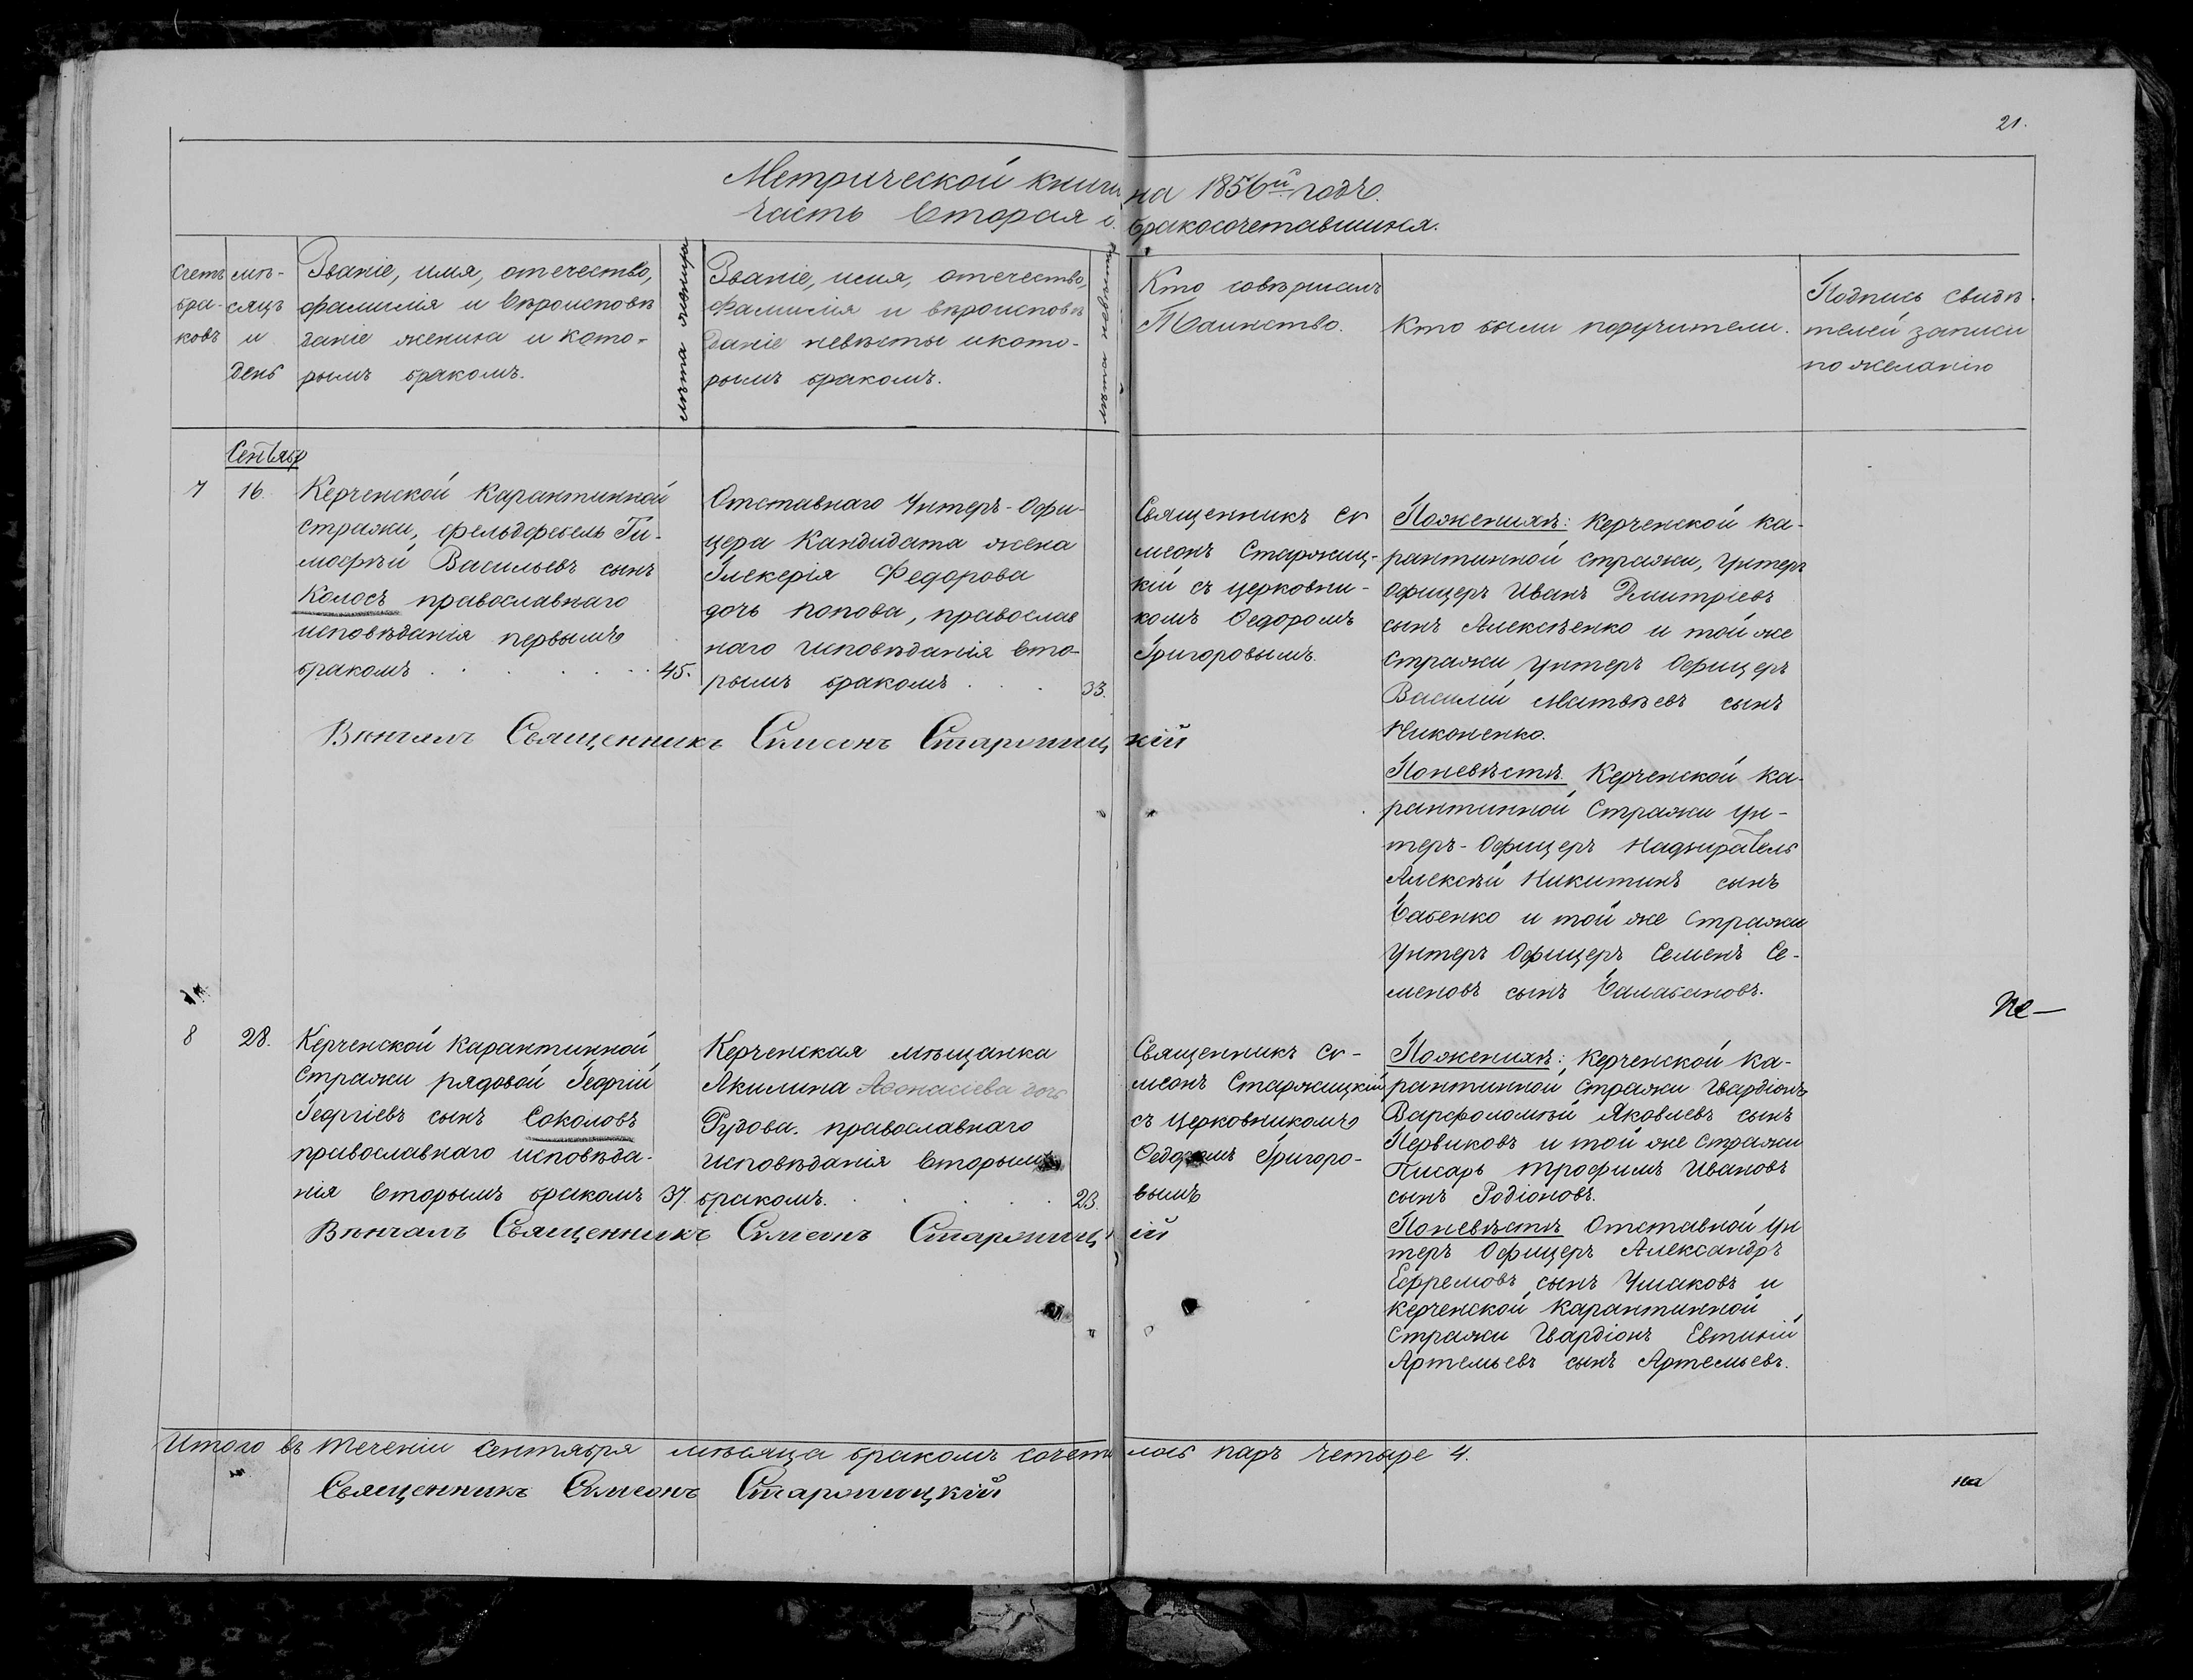 21.
Метрической книги на 1856й годъ.
часть вторая о бракосочетавшихся.
Счетъ бра-ковъ
мѣ-сяцъ и день
Званіе, имя, отечество,
фамилія и вѣроисповѣ
даніе жениха и кото-
рымъ бракомъ.
лѣта жениха
Званіе, имя, отечество,
фамилія и вѣроисповѣ
даніе невѣсты и кото-
рымъ бракомъ.
лѣта невѣсты
Кто совершалъ
Таинство.
Кто были поручители.
Подпись свидѣ-
телей записи
по желанію
Сентябр
7
16.
Керченской Карантинной
стражи, фельдфебель Ти-
мофѣй Васильевъ сынъ
Колосъ православнаго
исповѣданія первымъ
бракомъ . . . . . 45.
Отставнаго Унтеръ-Офи-
цера Кандидата жена
Гликерія Федорова
дочь Попова, православ
наго исповѣданія вто-
рымъ бракомъ . . . 33.
Священникъ Си
меонъ Старжиц-
кій съ церковни-
комъ Ѳедоромъ
Григоровымъ.
Поженихѣ: Керченской ка-
рантинной стражи, Унтеръ
Офицеръ Иванъ Дмитріевъ
сынъ Алексѣенко и той же
стражи Унтеръ Офицеръ
Василій Матвѣевъ сынъ
Никоненко.
Поневѣстѣ Керченской ка-
рантинной Стражи Ун-
теръ-Офицеръ Надзиратель
Алексѣй Никитинъ сынъ
Бабенко и той же Стражи
Унтеръ Офицеръ Семенъ Се-
меновъ сынъ Балабановъ.
Вѣнчалъ Священникъ Симеонъ Старжицкій
8
28.
Керченской Карантинной
Стражи рядовой Георгій
Георгіевъ сынъ Соколовъ
православнаго исповѣда-
нія вторымъ бракомъ 37.
Керченская мѣщанка
Акилина Аѳонасіева дочь
Рудова. православнаго
исповѣданія вторымъ
бракомъ. . . . . . 23.
Священникъ Си-
меонъ Старжицкій
съ Церковникомъ
Ѳедоромъ Григоро-
вымъ
Поженихѣ: Керченской Ка-
рантинной Стражи Гвардіонъ
Варфоломѣй Яковлевъ сынъ
Первиковъ и той же Стражи
Писарь Трофимъ Ивановъ
сынъ Родіоновъ.
Поневѣстѣ Отставной Ун
теръ Офицеръ Александръ
Ефремовъ сынъ Ушаковъ и
Керченской Карантинной
Стражи Гвардіонъ Евтихій
Артемьевъ сынъ Артемьевъ.
Вѣнчалъ Священникъ Симеонъ Старжицкій
Итого въ теченіи Сентября мѣсяца бракомъ сочеталось паръ четыре 4.
Священникъ Симеонъ Старжицкій
на